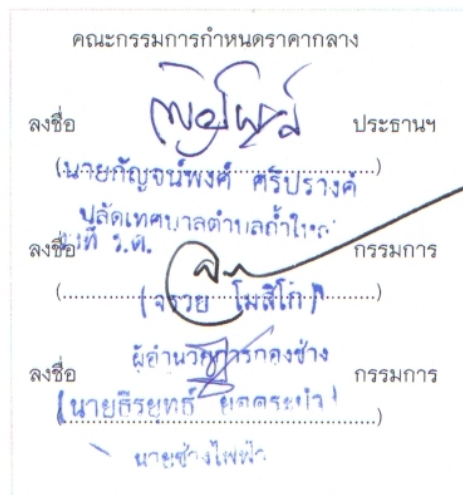 คณะกรรมการกำหนดราคากลาง
ลงชื่อ ประธานฯ
(นายกัญจน์พงศ์ ศรีปรางค์)
ปลัดเทศบาลตำบลถ้ำใหญ่
ลงชื่อ กรรมการ
(จรวย โมสิโก)
ผู้อำนวยการกองช่าง
ลงชื่อ กรรมการ
(นายธีรยุทธ์ ยอดระบำ)
นายช่างไฟฟ้า